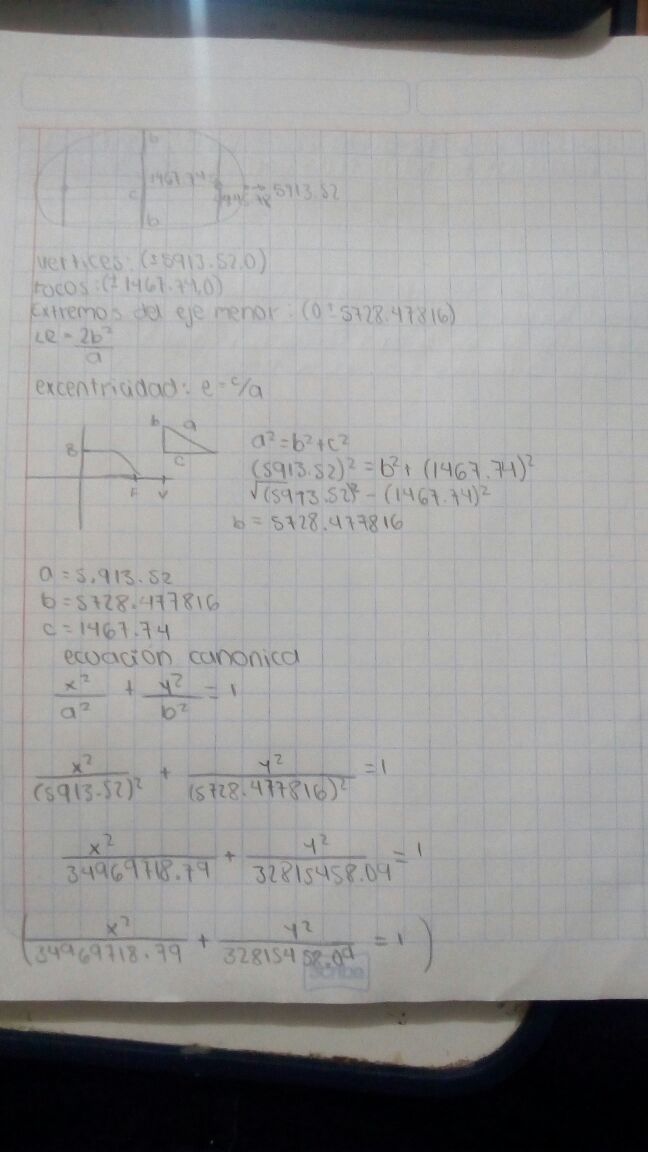 b
1467.74
c
b
5913.52
vertices: (±5913.52,0)
focos: (± 1467.74,0)
extremos del eje menor: (0 ± 5728.47816)
Le = 2b²/a
excentricidad: e = c/a
b a
c
B
F V
a² = b² + c²
(5913.52)² = b² + (1467.74)²
√(5913.52)² - (1467.74)²
b = 5728.477816
a = 5,913.52
b = 5728.477816
c = 1467.74
ecuación canonica
x²/a² + y²/b² = 1
x²/(5913.52)² + y²/(5728.477816)² = 1
x²/34969718.79 + y²/32815458.09 = 1
(x²/34969718.79 + y²/32815458.09 = 1)
Scribe